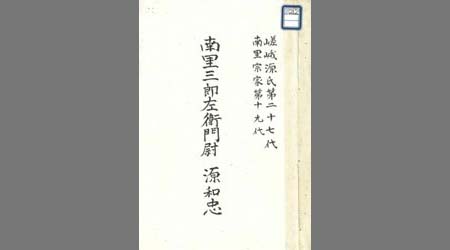 嵯峨源氏第二十七代
南里宗家第十九代
南里三郎左衛門尉 源和忠